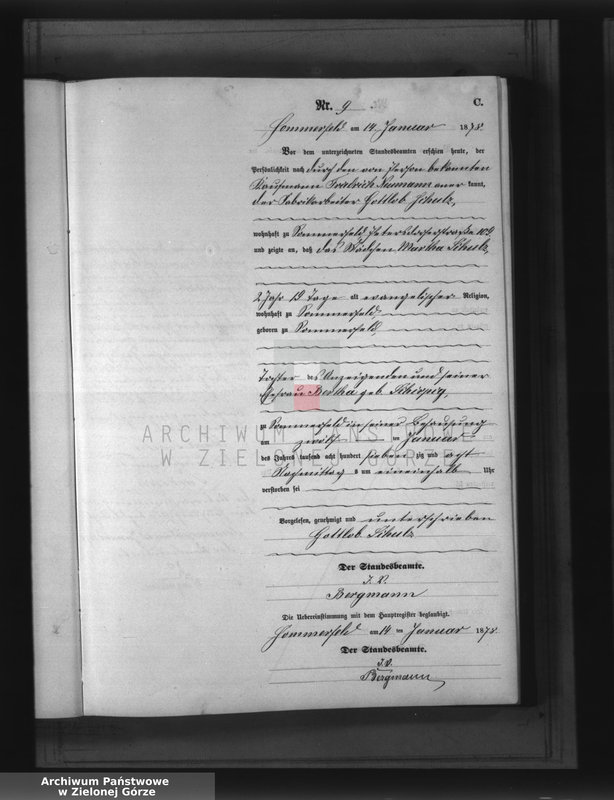 Nr. 9
C.
Sommerfeld am 14. Januar 1878
Vor dem unterzeichneten Standesbeamten erschien heute, der
Persönlichkeit nach durch den von Person bekannten
Kaufmann Friedrich Neumann aner kannt,
der Fabrikarbeiter Gottlob Schulz,
wohnhaft zu Sommerfeld
und zeigte an, daß das Mädchen Martha Schulz,
2 Jahr Tage alt evangelischer Religion,
wohnhaft zu Sommerfeld
geboren zu Sommerfeld,
Tochter des Anzeigenden und seiner
Ehefrau Bertha geb.
zu Sommerfeld in seiner Behausung
am zwölften Januar
des Jahres tausend acht hundert sieben zig und acht
Nachmittag s um eineinhalb Uhr
verstorben sei
Vorgelesen, genehmigt und unterschrieben
Gottlob Schulz
Der Standesbeamte.
I. V.
Bergmann
Die Uebereinstimmung mit dem Hauptregister beglaubigt.
Sommerfeld am 14 ten Januar 1878.
Der Standesbeamte.
I. V.
Bergmann
ARCHIWUM PAŃSTWOWE
W ZIELONEJ GÓRZE
Archiwum Państwowe
w Zielonej Górze